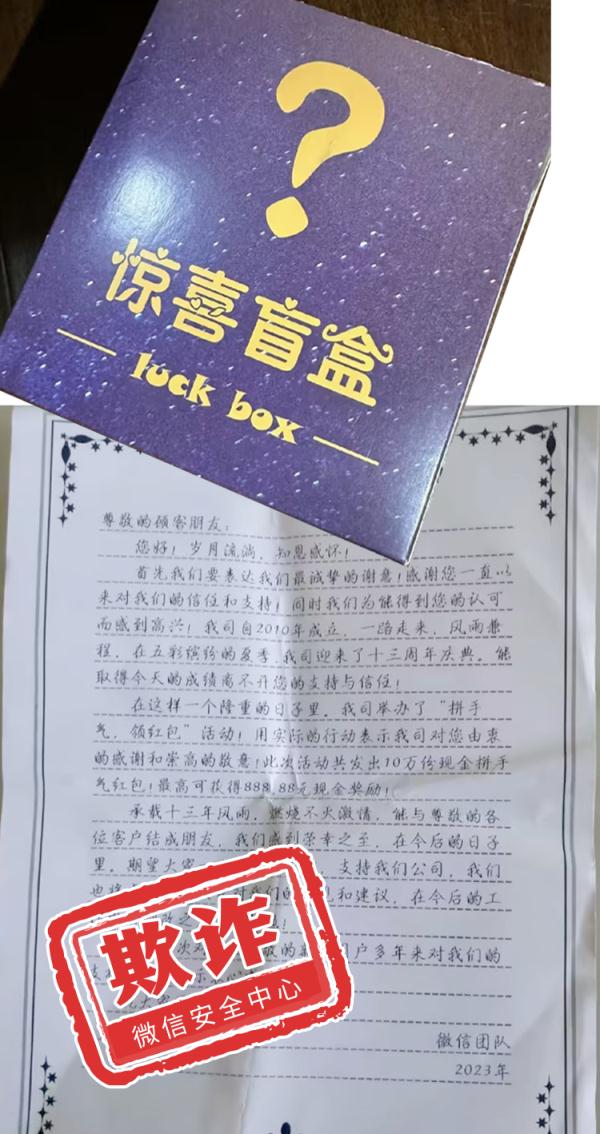 ?
惊喜盲盒
luck box
尊敬的顾客朋友：
您好！岁月流淌，知恩感怀！
首先我们要表达我们最诚挚的谢意！感谢您一直以
来对我们的信任和支持！同时我们为能得到您的认可
而感到高兴！我司自2010年成立，一路走来，风雨兼
程，在五彩缤纷的夏季，我司迎来了十三周年庆典。能
取得今天的成绩离不开您的支持与信任！
在这样一个隆重的日子里，我司举办了“拼手
气，领红包”活动！用实际的行动表示我司对您由衷
的感谢和崇高的敬意！此次活动共发出10万份现金拼手
气红包！最高可获得888.88元现金奖励！
承载十三年风雨，燃烧不火激情，能与尊敬的各
位客户结成朋友，我们感到荣幸之至，在今后的日子
里，期望大家 支持我们公司，我们
也将 对我们的 见和建议，在今后的工
次对 的 户多年来对我们的
微信团队
2023年
欺诈
微信安全中心